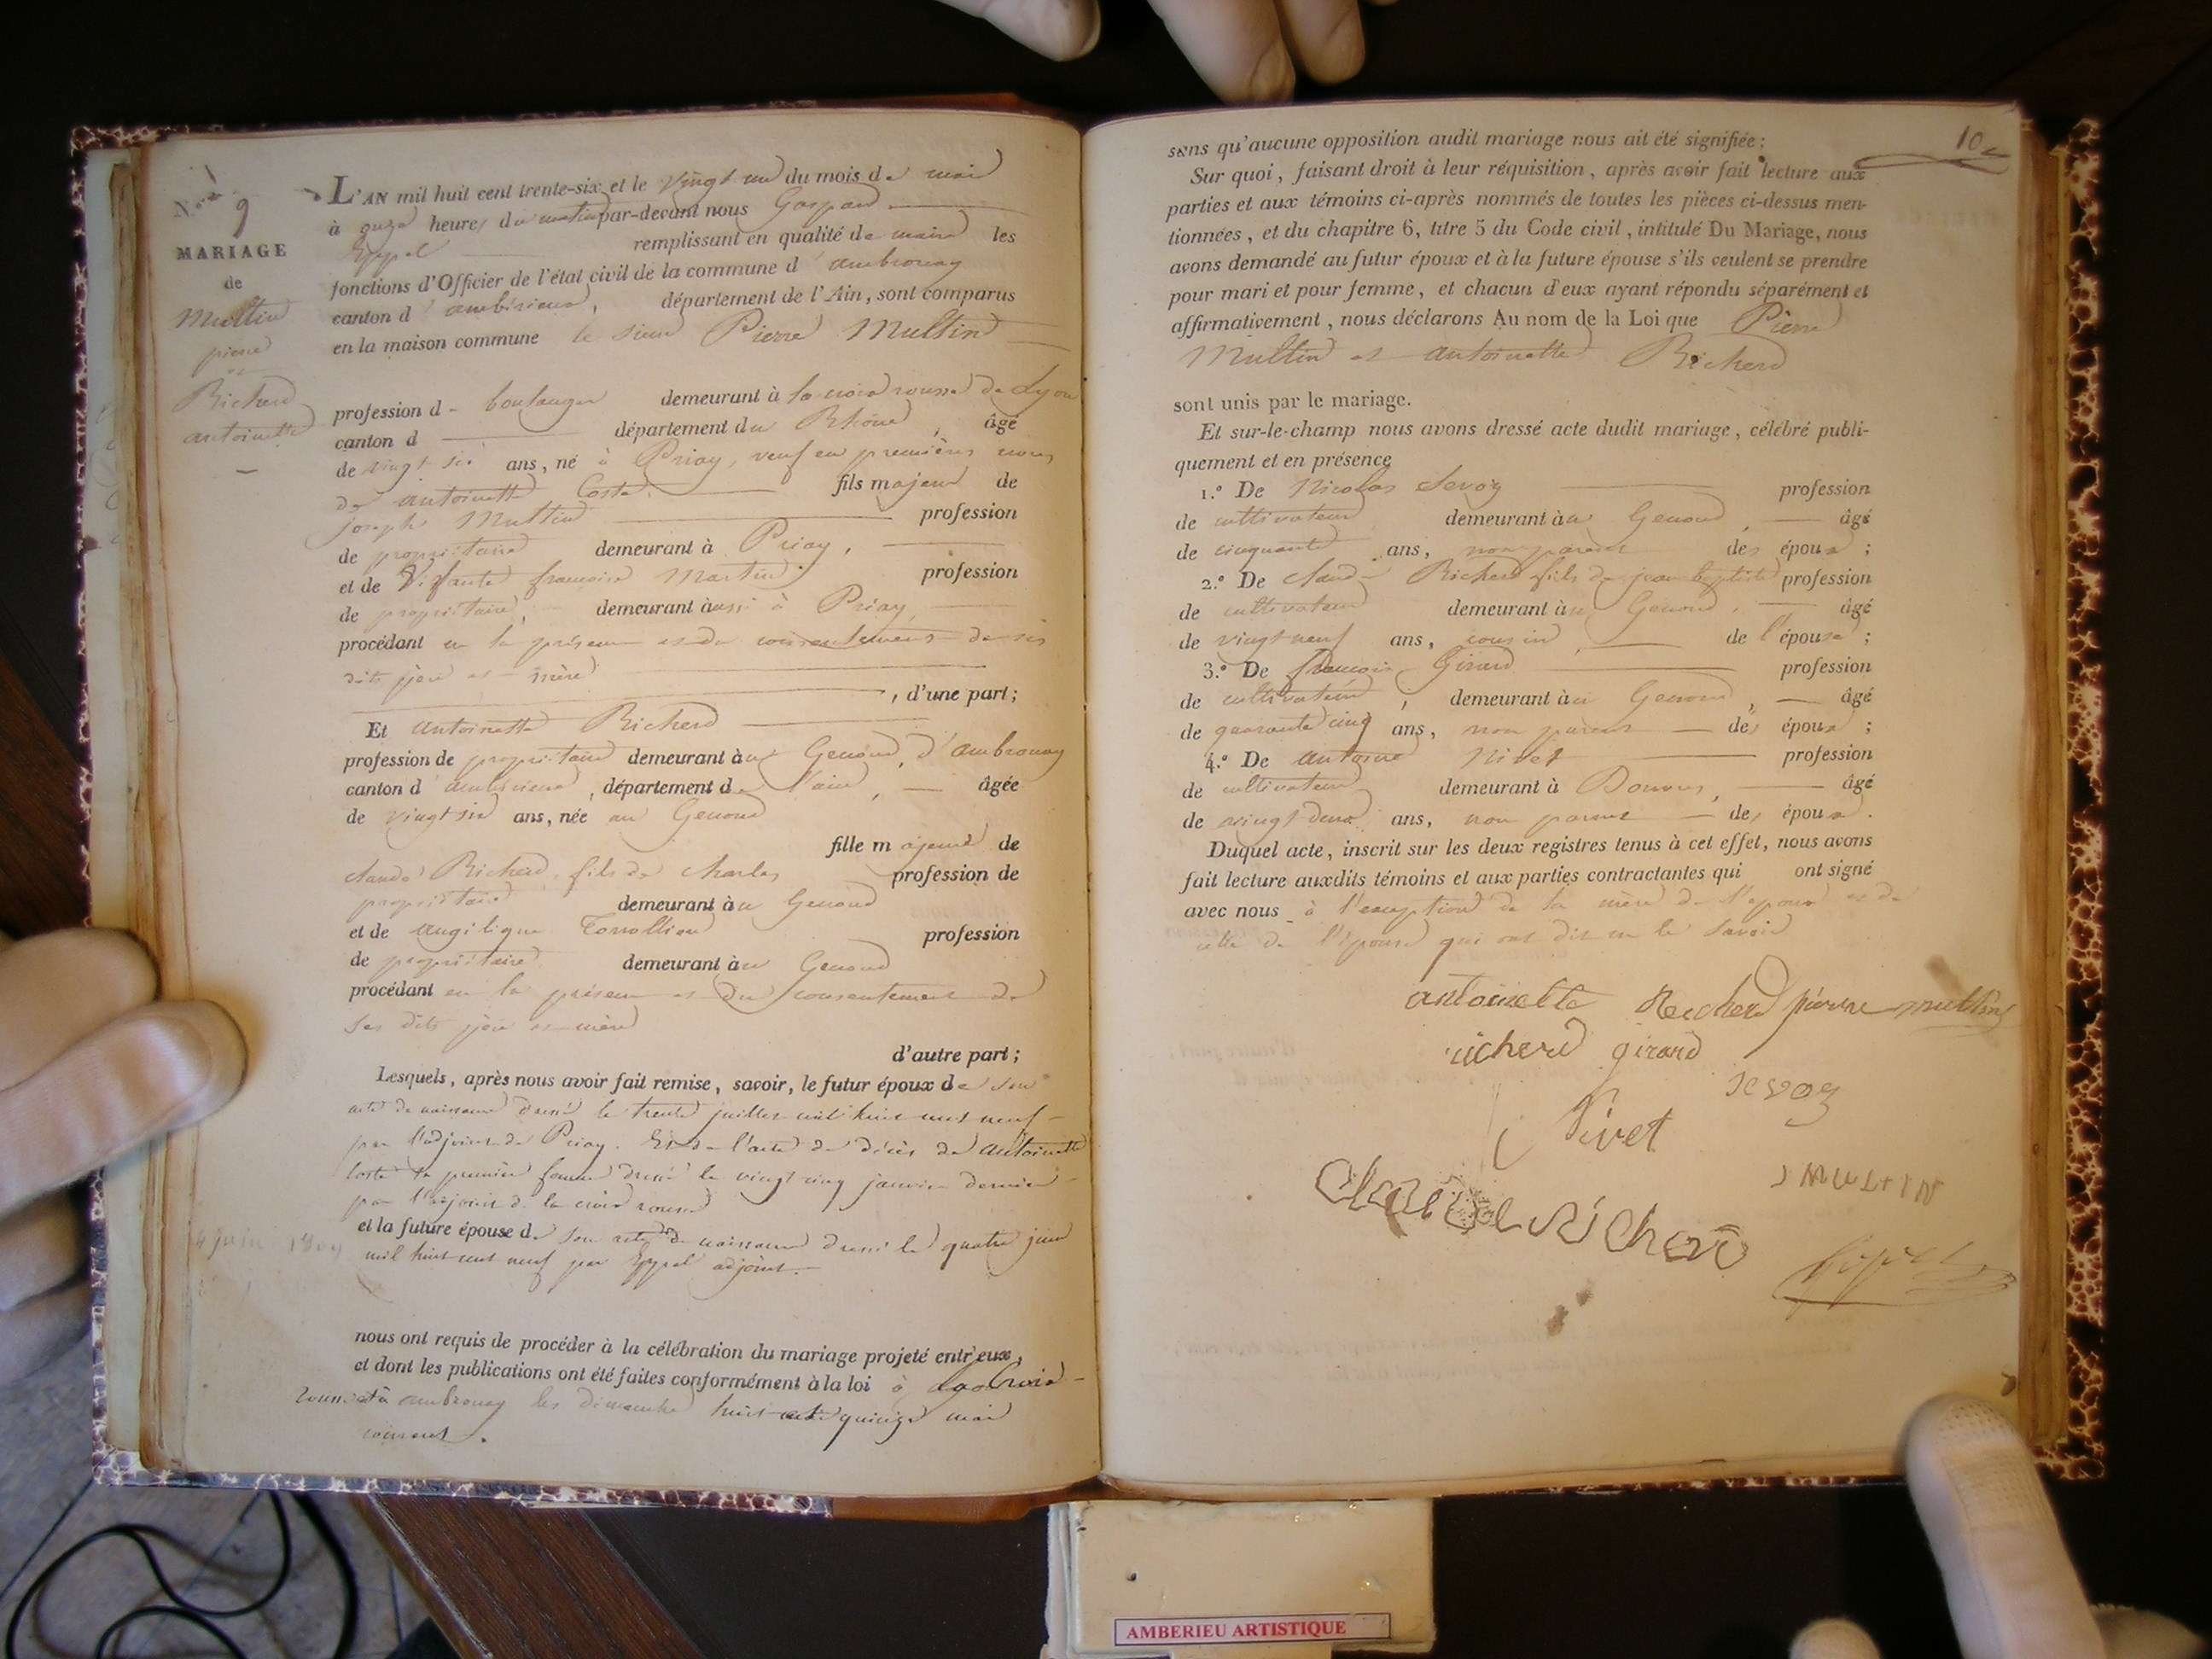 N.º 9
MARIAGE
de
Multin
pierre
et
Richerd
antoinette
L'AN mil huit cent trente-six et le vingt un du mois de mai
à onze heures du matin par-devant nous Gaspard
Eypel remplissant en qualité de maire les
fonctions d'Officier de l'état civil de la commune d'ambronay
canton d'ambérieux, département de l'Ain, sont comparus
en la maison commune le sieur Pierre Multin
profession de boulanger demeurant à la croix rousse de Lyon
canton d département du Rhône, âgé
de vingt six ans, né à Priay, veuf en premières noces
de antoinette Coste. fils majeur de
joseph Multin profession
de propriétaire demeurant à Priay,
et de françoise Martin profession
de propriétaire, demeurant aussi à Priay
procédant en la présence et du consentement de ses
dits père et mère
, d'une part;
Et antoinette Richerd
profession de propriétaire demeurant au Genoud, d'ambronay
canton d'ambérieux, département de l'ain, âgée
de vingt six ans, née au Genoud
fille majeure de
claude Richerd, fils de charles profession de
propriétaire demeurant au Genoud
et de angélique profession
de propriétaire demeurant au Genoud
procédant en la présence et du consentement de
ses dits père et mère
d'autre part;
Lesquels, après nous avoir fait remise, savoir, le futur époux de son
acte de naissance dressé le trente juillet mil huit cent neuf
par l'adjoint de Priay. Et de l'acte de décès de antoinette
Coste sa première femme dressé le vingt cinq janvier dernier
par l'adjoint de la croix rousse
et la future épouse de son acte de naissance dressé le quatre juin
mil huit cent neuf par Eypel adjoint.
4 juin 1809
nous ont requis de procéder à la célébration du mariage projeté entr'eux,
et dont les publications ont été faites conformément à la loi à la Croix-
rousse et à ambronay les dimanches huit et quinze mai
courant.
10
sans qu'aucune opposition audit mariage nous ait été signifiée;
Sur quoi, faisant droit à leur réquisition, après avoir fait lecture aux
parties et aux témoins ci-après nommés de toutes les pièces ci-dessus men-
tionnées, et du chapitre 6, titre 5 du Code civil, intitulé Du Mariage, nous
avons demandé au futur époux et à la future épouse s'ils veulent se prendre
pour mari et pour femme, et chacun d'eux ayant répondu séparément et
affirmativement, nous déclarons Au nom de la Loi que Pierre
Multin et antoinette Richerd
sont unis par le mariage.
Et sur-le-champ nous avons dressé acte dudit mariage, célébré publi-
quement et en présence
1.º De Nicolas Sevoz profession
de cultivateur demeurant au Genoud, âgé
de cinquante ans, non parent des époux;
2.º De claude Richerd fils de jean baptiste profession
de cultivateur demeurant au Genoud, âgé
de vingt neuf ans, cousin de l'épouse;
3.º De françois Girard profession
de cultivateur, demeurant au Genoud, âgé
de quarante cinq ans, non parent des époux;
4.º De antoine Nivet profession
de cultivateur demeurant à Douvres, âgé
de vingt deux ans, non parent des époux.
Duquel acte, inscrit sur les deux registres tenus à cet effet, nous avons
fait lecture auxdits témoins et aux parties contractantes qui ont signé
avec nous à l'exception de la mère de l'époux et de
celle de l'épouse qui ont dit ne le savoir
antoinette Recherd pierre multin
richerd girard
sevoz
Nivet
J MULTIN
claude Richerd
Eypel
AMBERIEU ARTISTIQUE